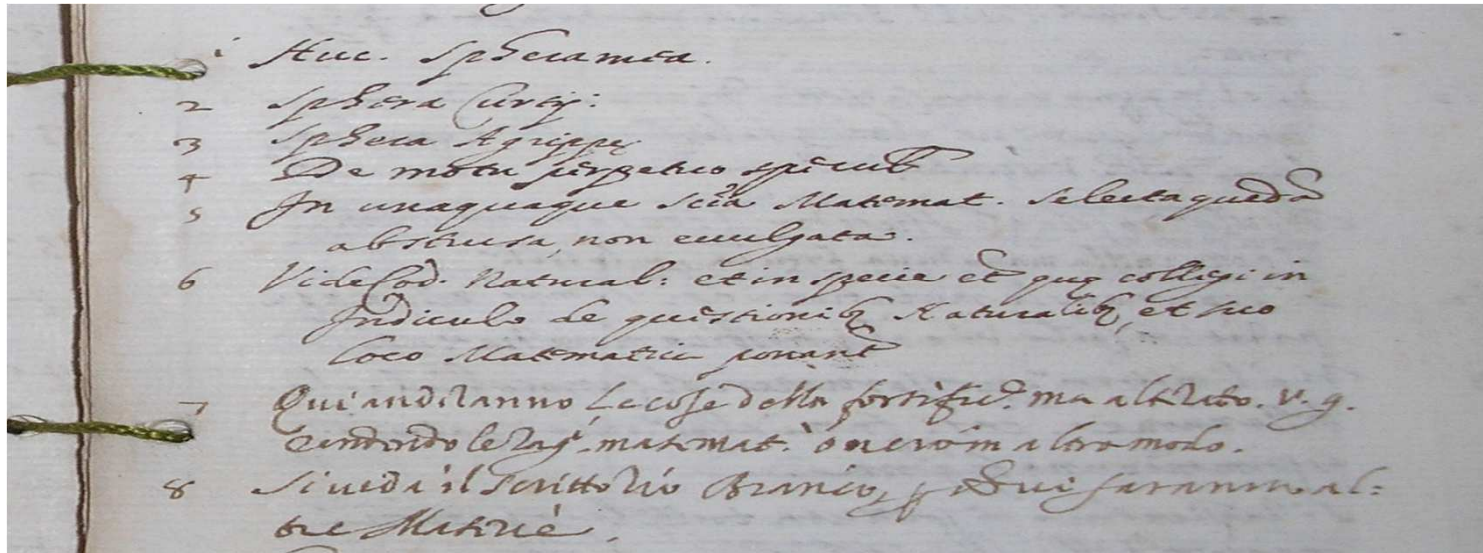 1 Huc. Sphera mea.
2 Sphera Curtij:
3 Sphera Agrippę
4 De motu perpetuo specul
5 In unaquaque sciā Matemat. selecta quedā
abstrusa, non euulgata.
6 Vide Cod. Natural: et in specie ea quę collegi in
Indiculo de questionibȝ Naturalibȝ, et suo
loco Matematici
7 Qui anderanno le cose della fortific. ma alterato. v. g.
le rag. matemat. o uero in altro modo.
8 Si ueda il Scrittorio Bianco, qui saranno al:
tre Materie.